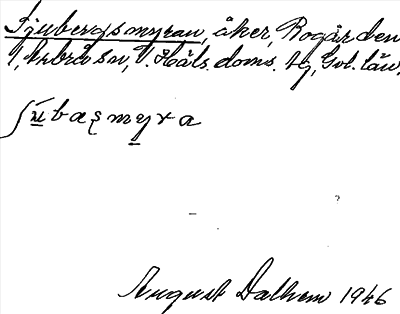 Sjubergsmyran, åker, Rogården
1, Arbrå sn, V. Häls. doms. tg, Gvl. län,
ʃu̲baꞩmyra
August Dalhem 1946